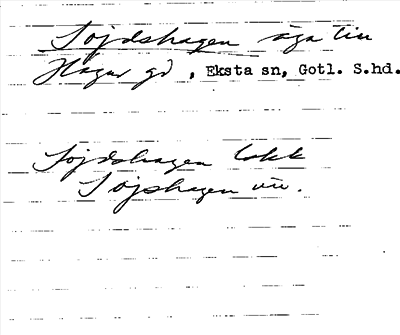 Söjdshagen äga till
Hagur gd, Eksta sn, Gotl. S.hd.
Söjdshagen lokk
Söjshagen uu.